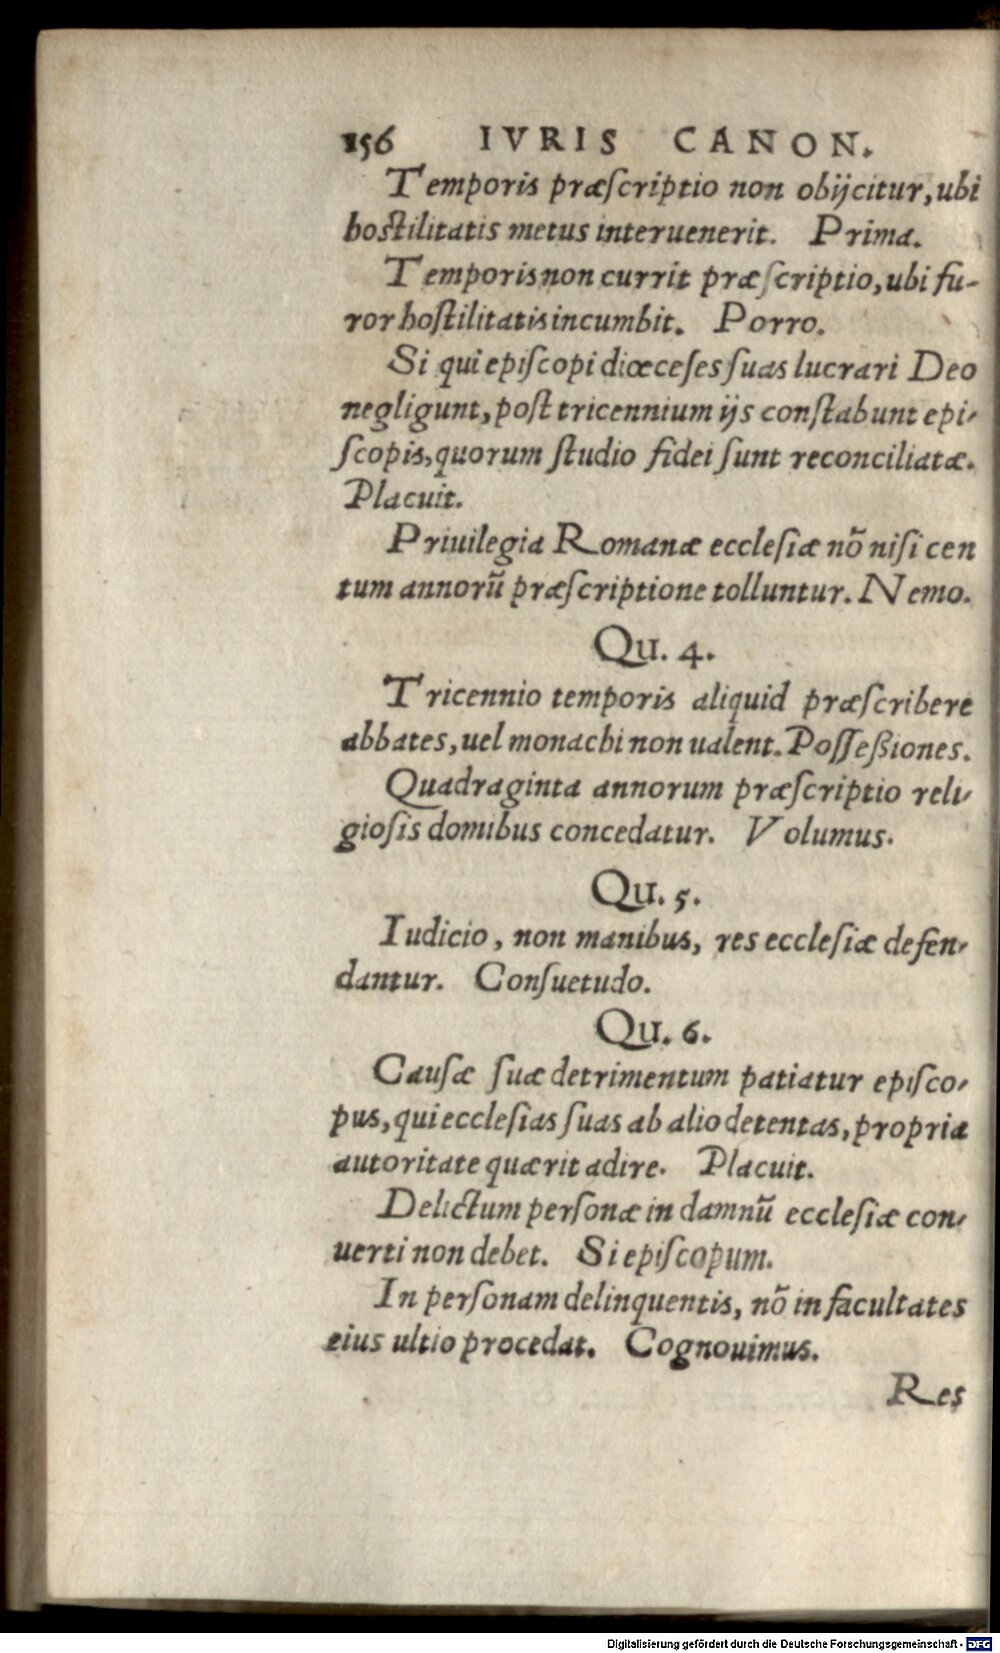 156 IVRIS CANON.
Temporis præſcriptio non obijcitur, ubi
hoſtilitatis metus interuenerit. Prima.
Temporis non currit præſcriptio, ubi fu-
ror hoſtilitatis incumbit. Porro.
Si qui epiſcopi diœceſes ſuas lucrari Deo
negligunt, poſt tricennium ijs conſtabunt epi-
ſcopis, quorum ſtudio fidei ſunt reconciliatæ.
Placuit.
Priuilegia Romanæ eccleſiæ nõ niſi cen
tum annorũ præſcriptione tolluntur. Nemo.
Qu. 4.
Tricennio temporis aliquid præſcribere
abbates, uel monachi non ualent. Poſſeßiones.
Quadraginta annorum præſcriptio reli-
gioſis domibus concedatur. Volumus.
Qu. 5.
Iudicio, non manibus, res eccleſiæ defen-
dantur. Conſuetudo.
Qu. 6.
Cauſæ ſuæ detrimentum patiatur epiſco-
pus, qui eccleſias ſuas ab alio detentas, propria
autoritate quærit adire. Placuit.
Delictum perſonæ in damnũ eccleſiæ con-
uerti non debet. Si epiſcopum.
In perſonam delinquentis, nõ in facultates
eius ultio procedat. Cognouimus.
Res
Digitalisierung gefördert durch die Deutsche Forschungsgemeinschaft - DFG